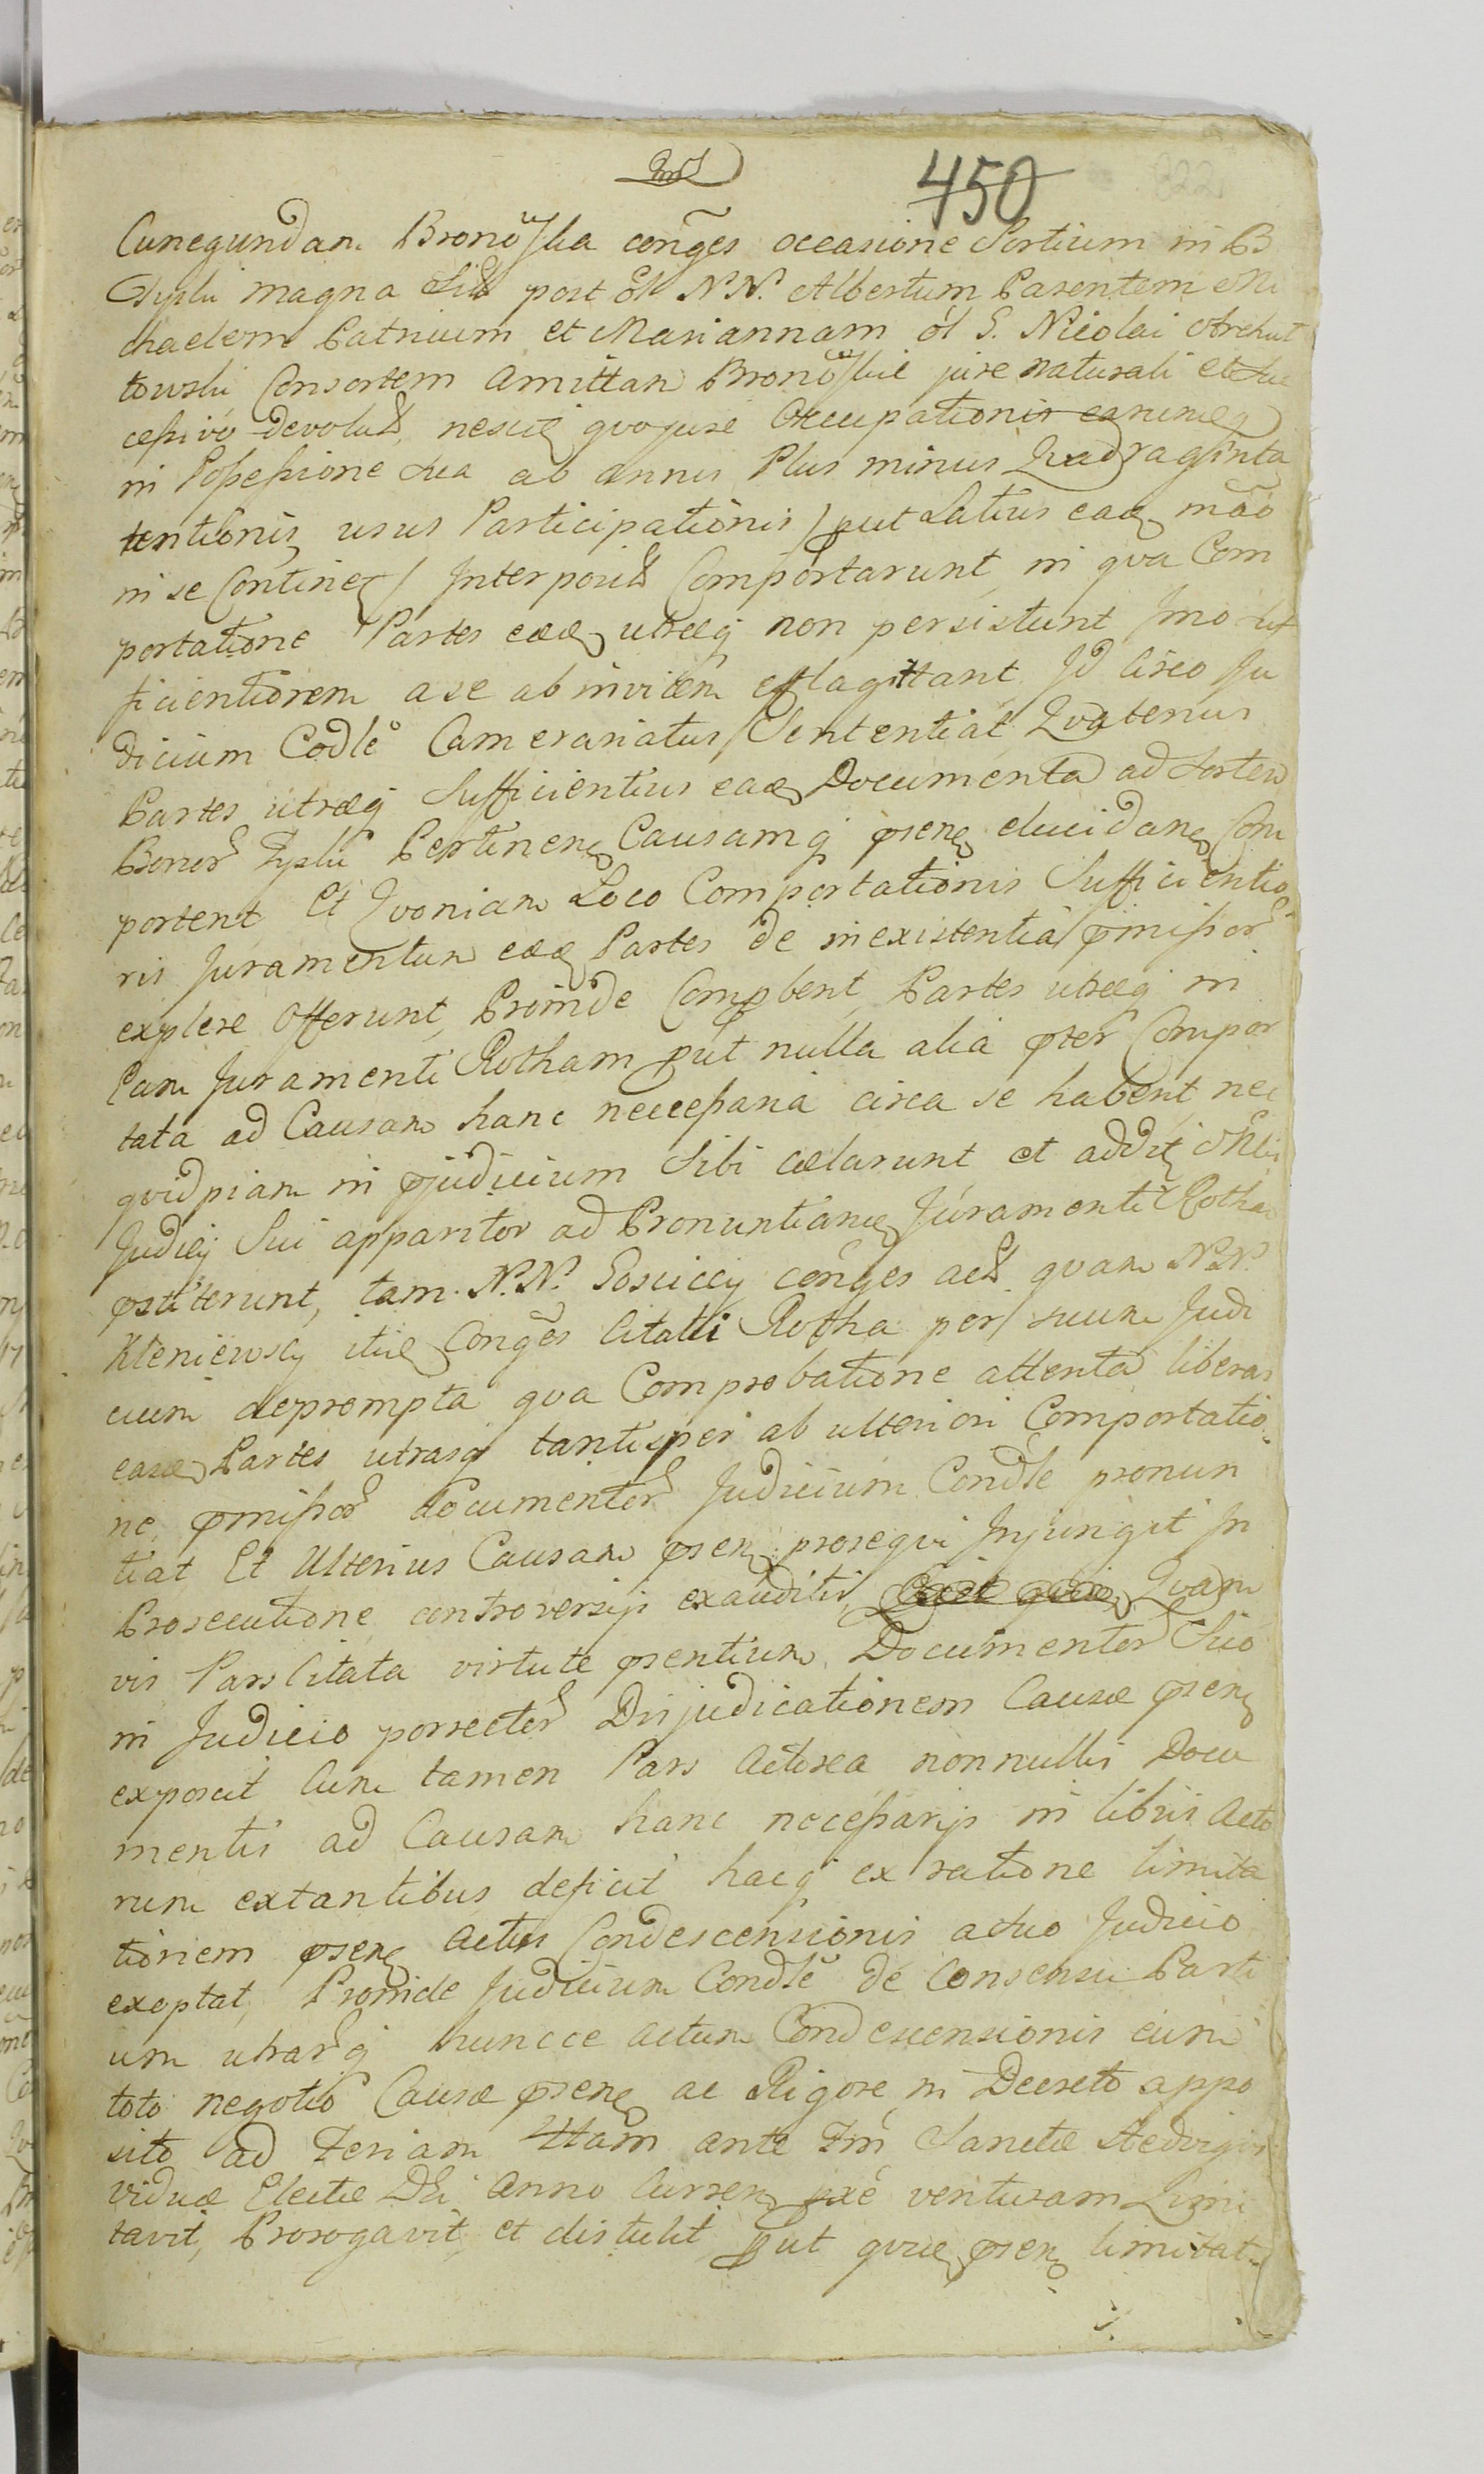 450
822
Cunegundam Bronows̃ka conges occasione Sortium in B
Tyslki magna Sit post ol N.N. Albertum Parentem Mi
chaelem Patruum et Mariannam ol G. Nicolai Strehut
towski Consortem Amittam Bronowskie jure naturali et Suc
cessivo devolut nescitq quojure Occupationis earumq
in Possessione sua ab annis Plus minus Quadraginta
tentionis, usus Participationis / put Latius eaq mõo
in se Continet / Interposit Comportarunt, in qva Com
portatione Partes eaeq utraeq non persistunt Imo Suf
ficientiorem a se ab invicem efflagittant, Id circo Ju
dicium Codle Camerariatus Sententiat, Qvatenus
Partes utraeq Sufficientius eaq Documenta ad Sortem
Bonor Tyslki Pertinen Causamq psen elucidan Com
portent Et Qvoniam Loco Comportationis Sufficientio
ris Juramentum eaeq Partes de inexistentia pmissor
explere Offerunt, Proinde Compbent, Partes utraeq in
eam Juramenti Rotham put nulla alia pter Compor
tata ad Causam hanc neccessaria circa se habent, nec
qvidpiam in pjudicium Sibi celarunt et addit
Judicij Sui apparitor ad Pronuntian Juramenti Rotham
pstiterunt, tam N.N. Gosciccy conges act qvam N.N.
Kleniewscy itiq Conges Citati Rotha per suum Judi
cium deprompta qva Comprobatione attenta liberas
easq Partes utrasq tantisper ab ulteriori Comportatio
ne pmissor documentor Judicium Condle pronun
tiat Et Ulterius Causam psen prosequi Injungit In
Prosecutione controversijs exauditis, Qvam
vis Pars Citata virtute psentium Documentor Suo
in Judicio porrector Disjudicationem Causae psen
exposcit Cum tamen Pars Actorea nonnullis Docu
mentis ad Causam hanc necessarijs in libris Acto
rum extantibus deficit hacq ex ratione limita
tionem psen Actus Condescensionis a suo Judicio
exoptat, Proinde Judicium Condle de Consensu Parti
um utrarq huncce actum Condescensionis cum
toto negotio Causae psen ac Rigore in Decreto appo
sito ad Feriam IItam ante Fm Sanctae Hedvigis
viduae Electae Dei Anno Curren pxe venturam Limi
tavit, Prorogavit, et distulit put qvidq psen limitat